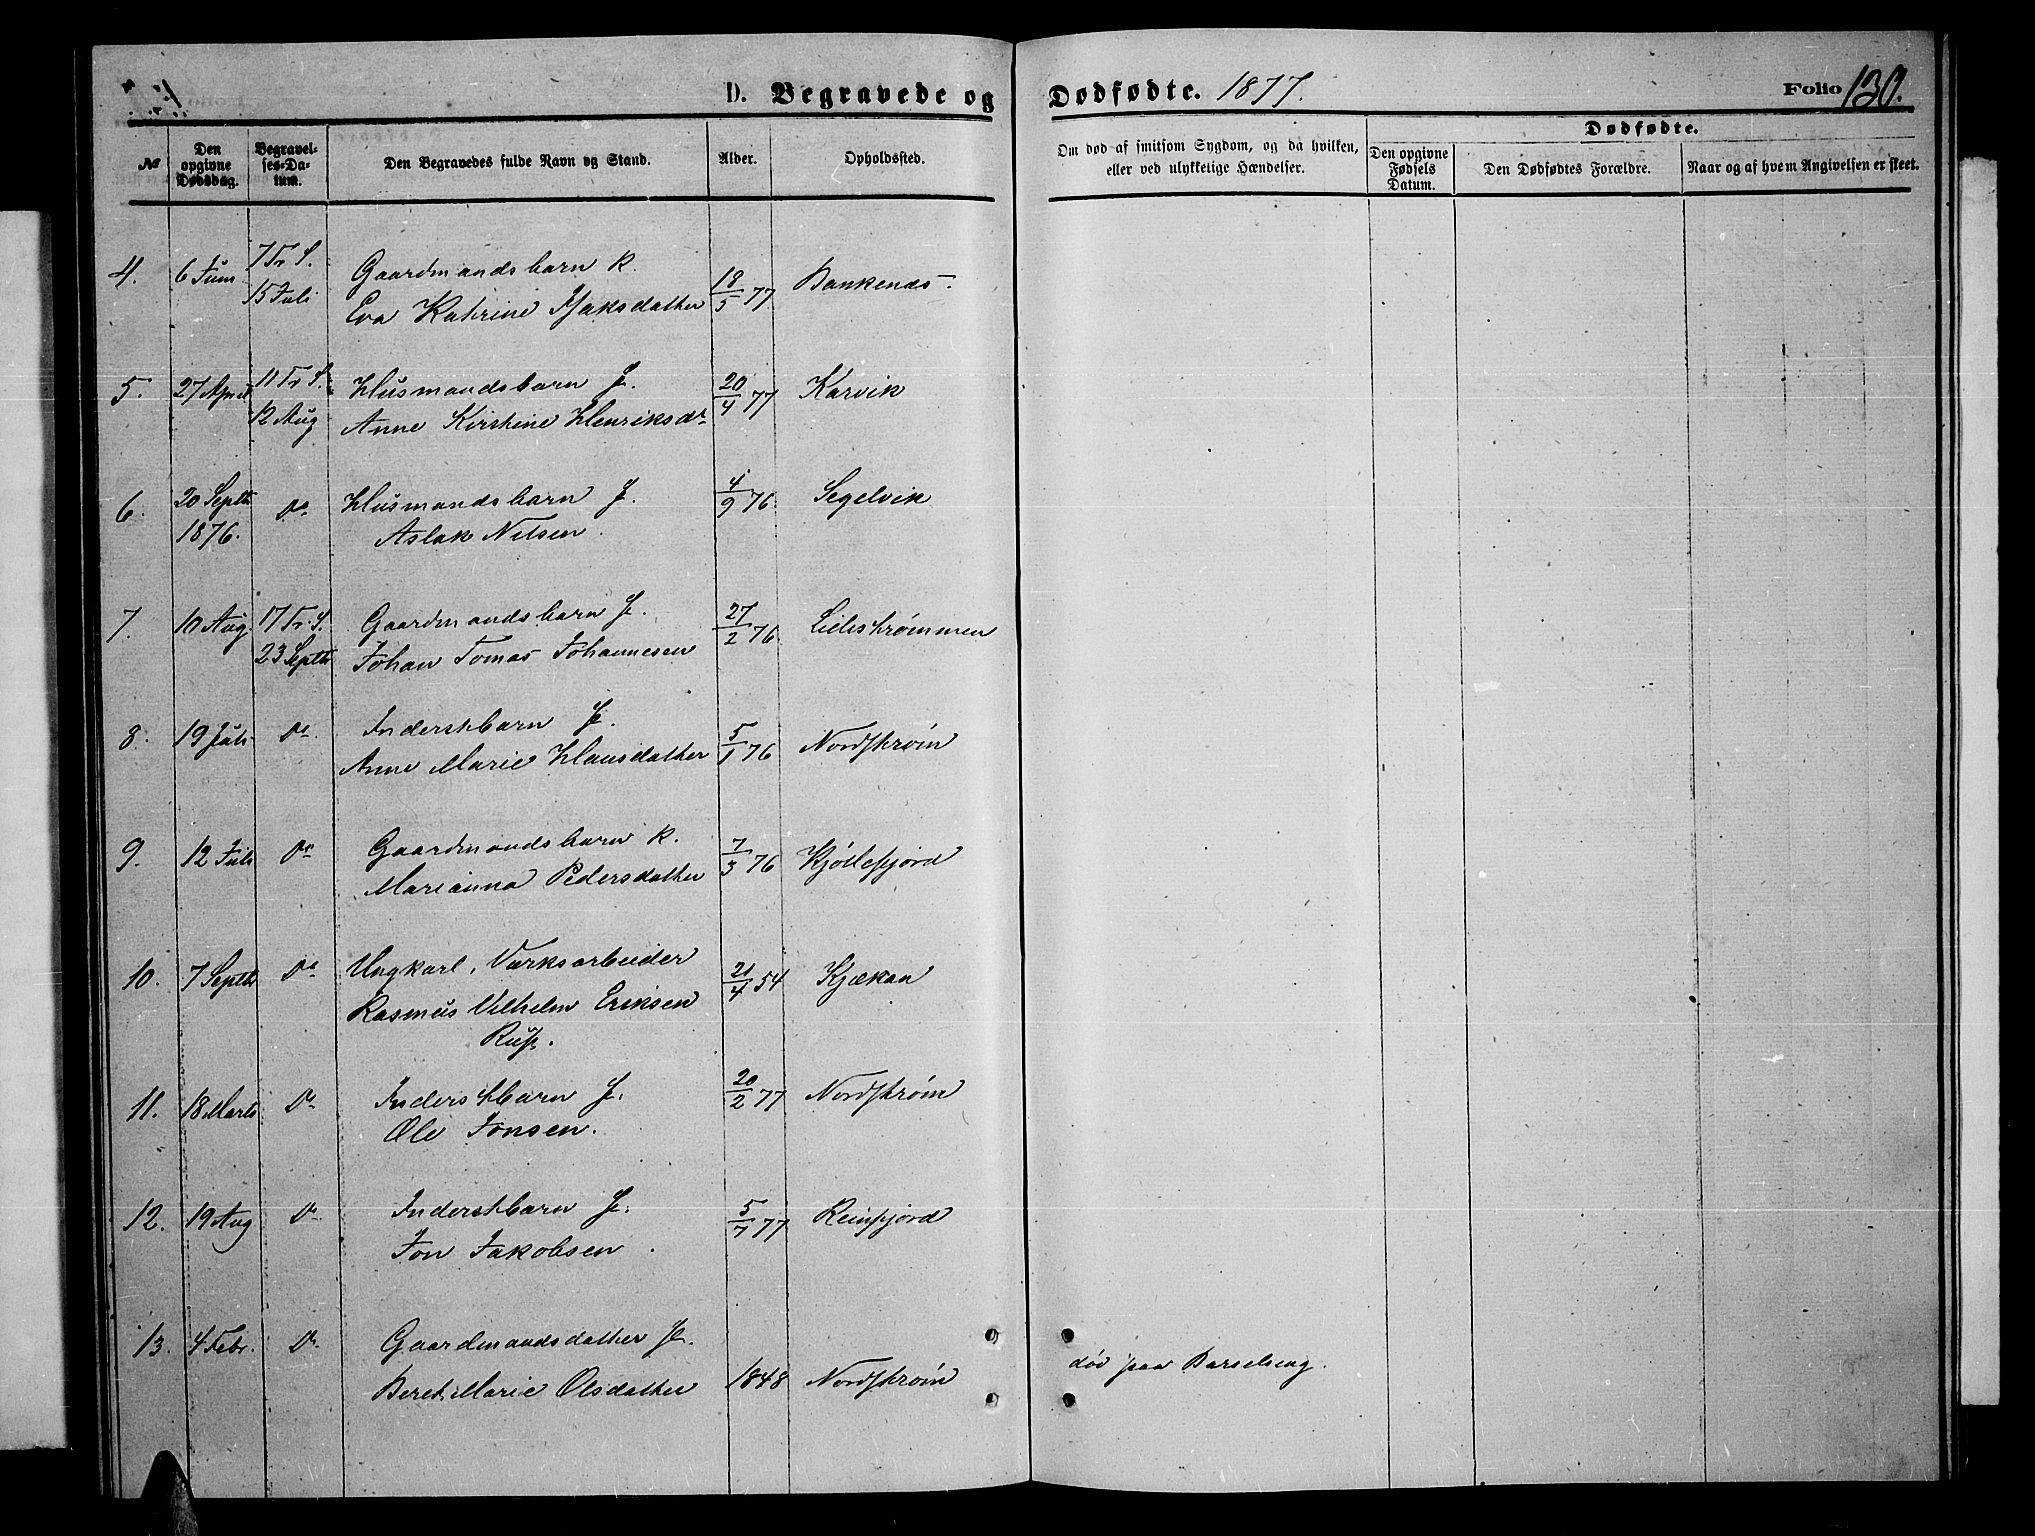 D. Begravede og Dødfødte. 1877. Folio 130.
№ Den opgivne Dødsdag. Begravelses-Datum. Den Begravedes fulde Navn og Stand. Alder. Opholdssted. Om død af smitsom Sygdom, og da hvilken, eller ved ulykkelige Hændelser. Dødfødte. Den opgivne Fødsels Datum. Den Dødfødtes Forældre. Naar og af hvem Angivelsen er skeet.
4. 6 Juni 7 Tr S. 15 Juli Gaardmandsbarn K.
Eva Katrine Isaksdatter 18/5 77 Bankenæs
5. 27 April 11 Tr S. 12 Aug Husmandsbarn F.
Anne Kirstine Henriksdr 20/4 77 Karvik
6. 20 Septbr 1876. Do Husmandsbarn F.
Aslak Nilsen 4/9 76. Segelvik
7. 10 Aug. 17 Tr. S. 23 Septbr Gaardmandsbarn F.
Johan Tomas Johannesen 27/2 76. Lillestrømmen
8. 19 Juli Do. Inderstbarn F.
Anne Marie Klausdatter 5/1 76 Nordstrøm
9. 12 Juli Do Gaardmandsbarn K.
Marianna Pedersdatter 7/3 76 Kjøllefjord
10. 7 Septbr Do Ungkarl, Værksarbeider
Rasmus Vilhelm Eriksen
Russ. 21/4 54 Kjækan
11. 18 Marts Do Inderstbarn F.
Ole Jonsen. 20/2 77 Nordstrøm
12. 19 Aug Do Inderstbarn F.
Jon Jakobsen. 5/7 77 Reinfjord
13. 4 Febr. Do Gaardmandsdatter F.
Beret Marie Olsdatter 1848 Nordstrøm død paa Barselseng.